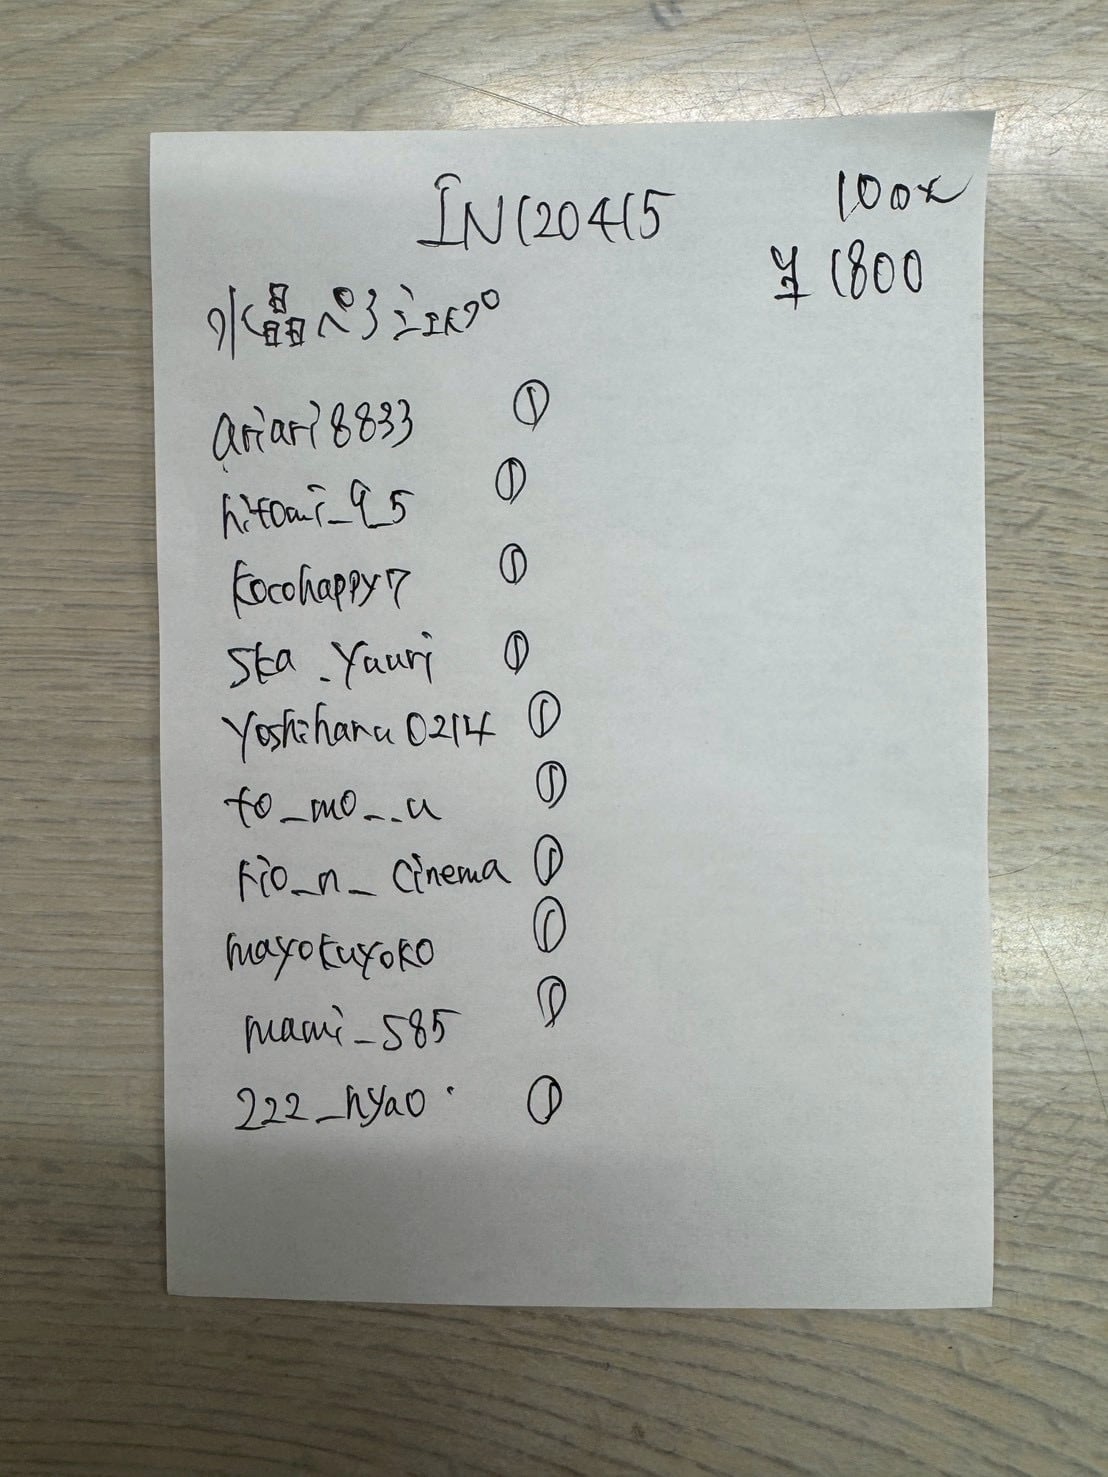 IN120415
100x
¥1800
水晶ペ
ariari8833 ①
hitomi_9_5 ①
kocohappy7 ①
ska_yuuri ①
yoshiharu0214 ①
to_mo__u ①
rio_n_cinema ①
mayokuyoko ①
mami_585 ①
222_hyao ①